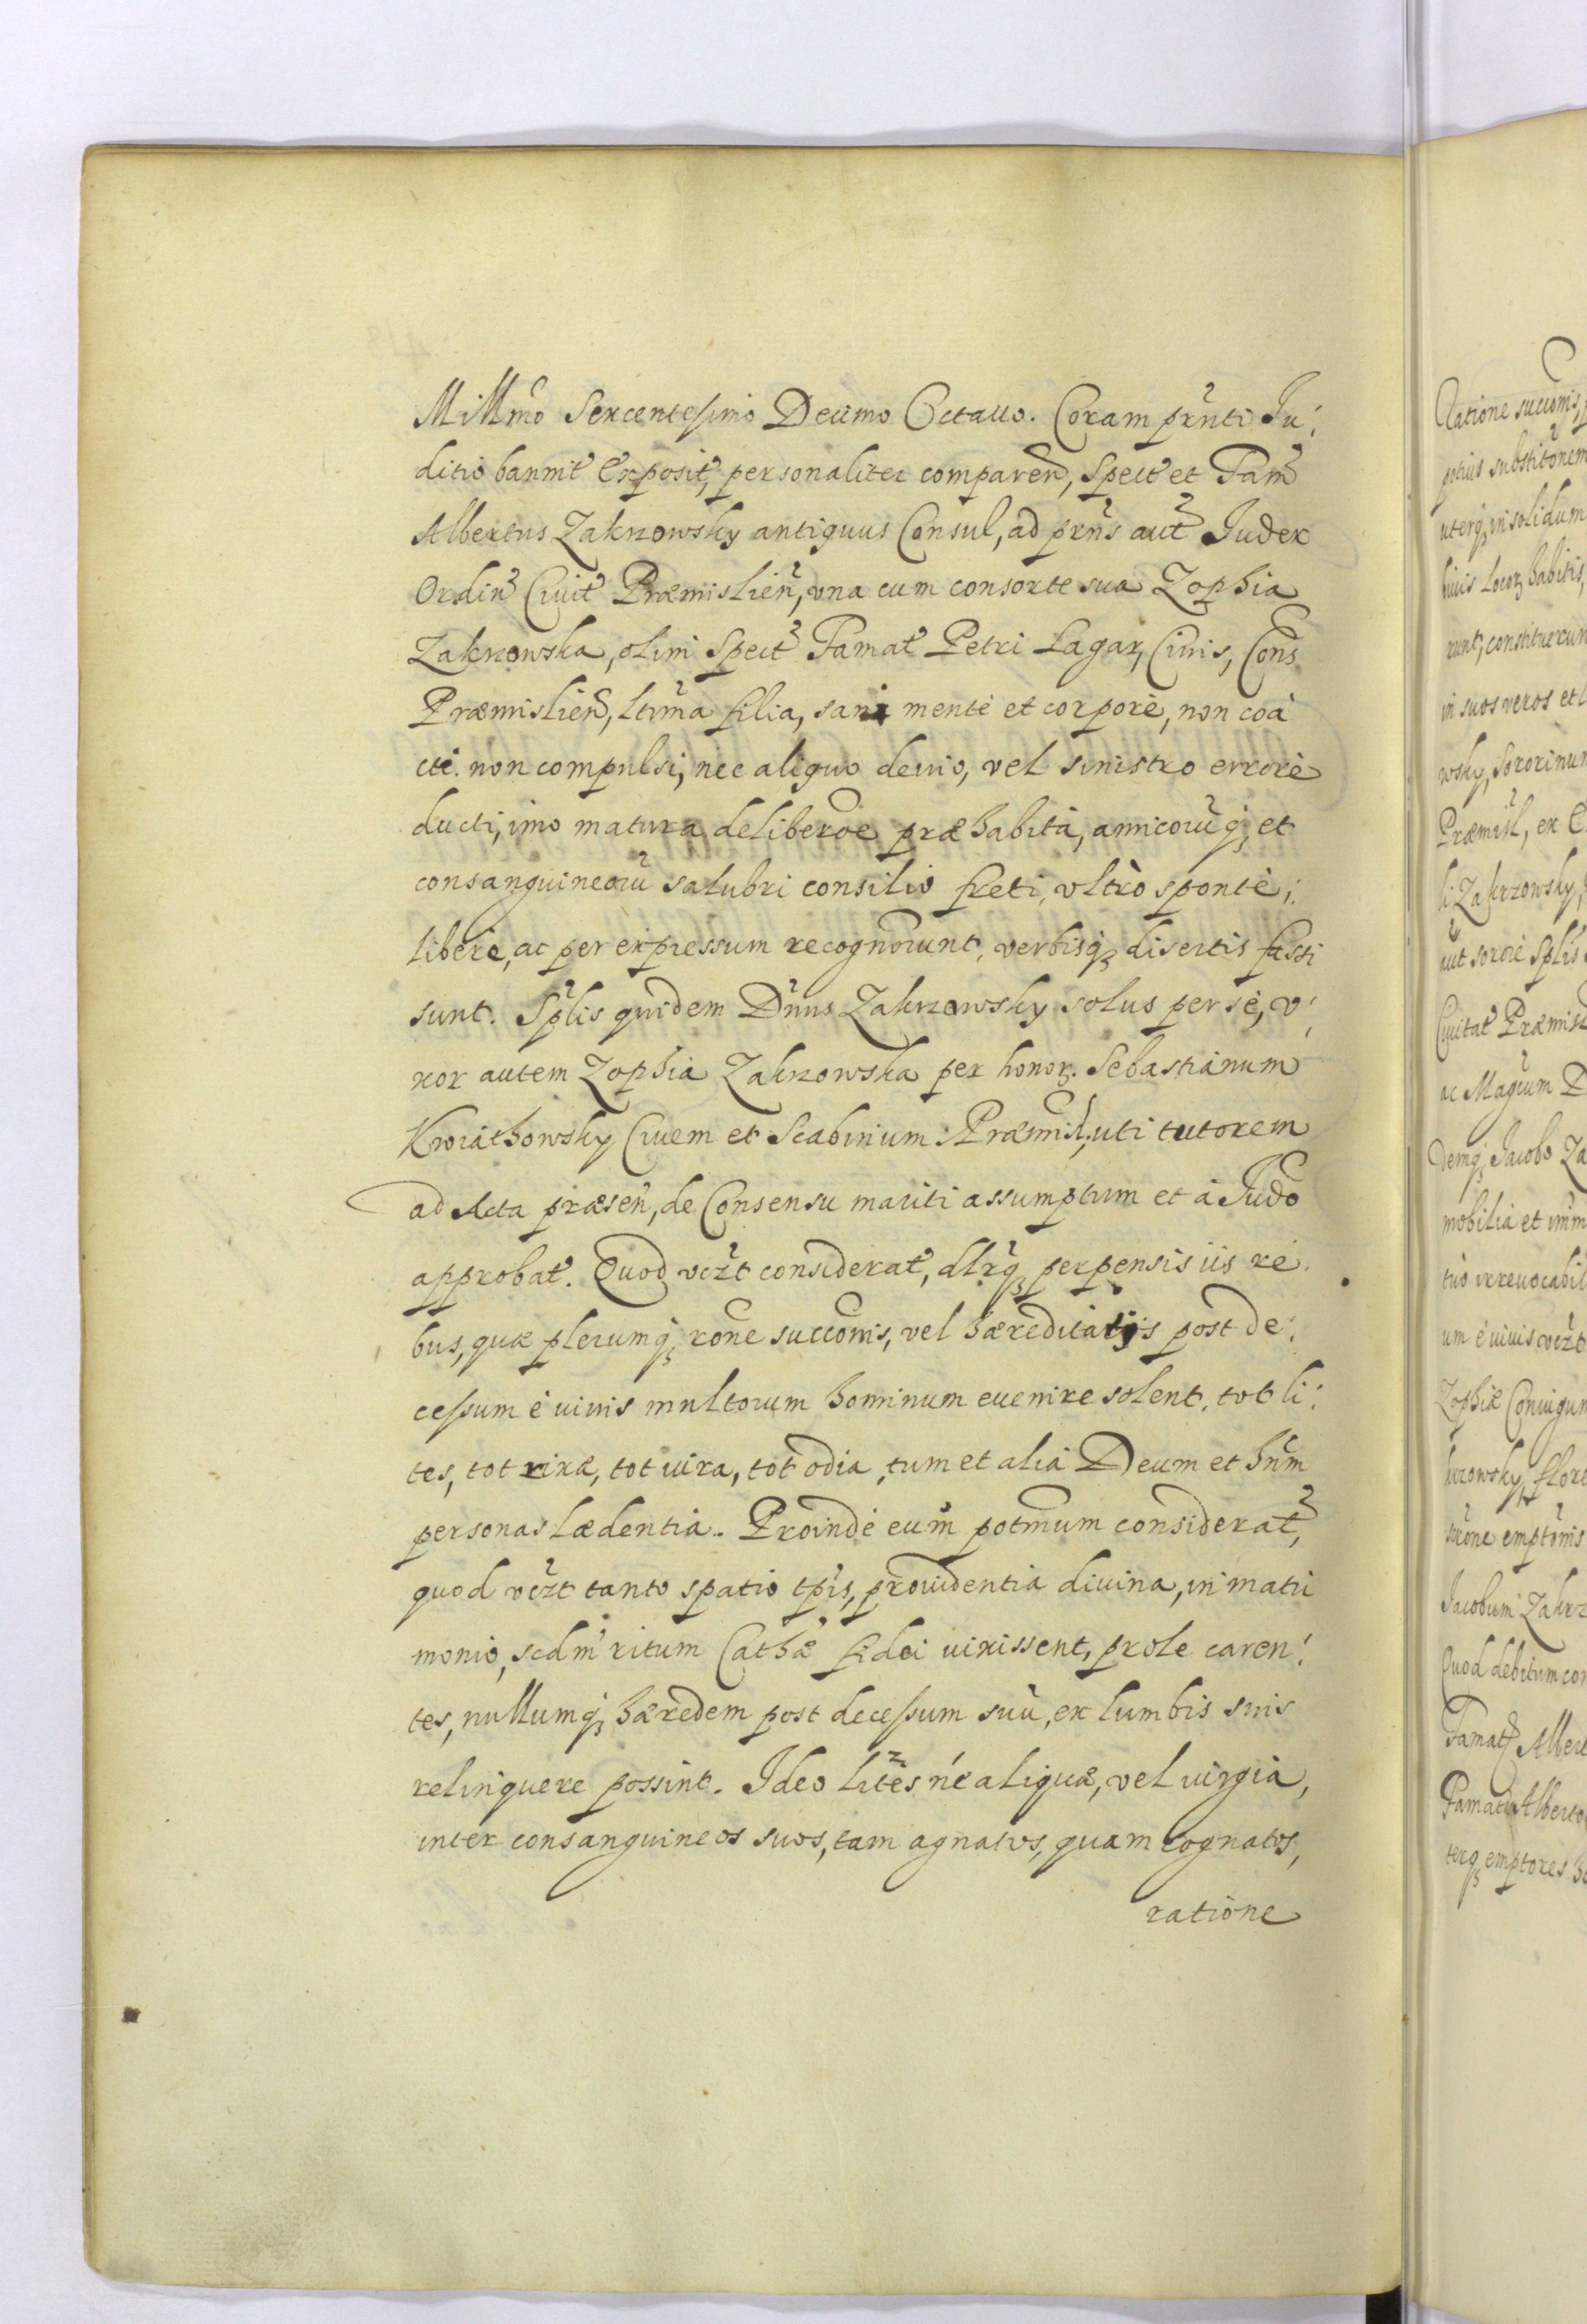 Millmo Sexcentesimo Decimo Octauo. Coram prnti Ju:
ditio bannit Exposit, personaliter comparen, Spect et Fam
Albertus Zakrzowsky antiquus Consul, ad prns aut Judex
Ordin Ciuit Præmislien, vna cum consorte sua Zophia
Zakrzowska, olim Spect Famat Petri Łagar, Ciuis, Cons
Præmislien, ltima filia, sani mente et corpore, non coa
cti. non compulsi, nec aliquo deuio, vel sinistro errore
ducti, imo matura deliberoe præhabita, amicorūq3 et
consanguineorū salubri consilio freti, vltrò spontè,:
liberè, ac per expressum recognorunt, verbisq3 disertis fassi
sunt. Splis quidem Dnus Zakrzowsky solus per sè, v:
xor autem Zophia Zakrzowska per honor. Sebastianum
Kwiathowsky Ciuem et Scabinum Præmisl, uti tutorem
ad Acta præsen, de Consensu mariti assumptum et à Judo
approbat. Quod vezt considerat, dlrq3 perpensis iis re.
bus, quæ plerumq3 rone succonis, vel hæreditatis post de:
cessum è viuis multorum hominum euenire solent, tot li:
tes, tot rixæ, tot iura, tot odia, tum et alia Deum et hnm
personas lædentia. Proinde eum potmum considerat,
quod vezt tanto spatio tpis, prouidentia diuina, in matri
monio, scdm ritum Cathæ fidei vixissent, prole caren:
tes, nullumq3 hæredem post decessum suū, ex lumbis suis
relinquere possint. Ideo lites né aliquæ, vel iurgia,
inter consanguineos suos, tam agnatos, quam cognatos,
ratione
Ratione succonis,
potius substitonem
uterq3 in solidum
huius locor3 habitis,
runt, constituerun
in suos veros et l
wsky, Sororinum
Præmisl, ex
li Zakrzowsky,
aut sorore Splis
Ciuitat Præmisl
ac Magcum D
demq3 Jacobo Za
mobilia et imm
tuò irreuocabil
um è viuis vezt
Zophiæ Coniugum
krzowsky, flore
scone emptonis
Jacobum Zakrz
Quod debitum con
Famat Albert
Famato Alberto
terq3 emptores